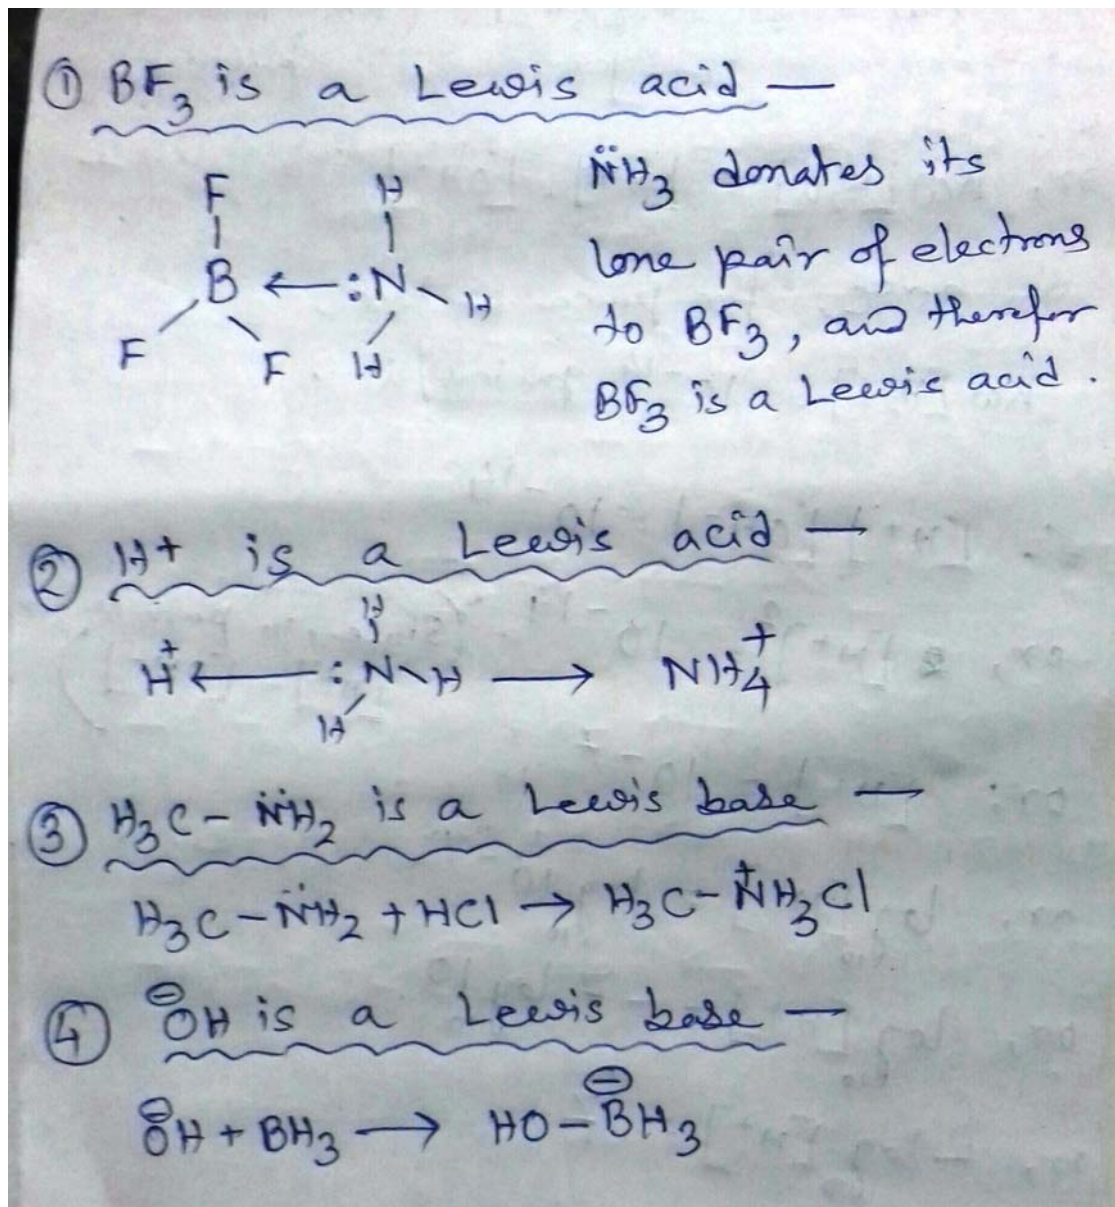 ① BF₃ is a Lewis acid —
F H
N̈H₃ donates its
lone pair of electrons
B ← :N - H
to BF₃, and therefor
F F H
BF₃ is a Lewis acid.
② H⁺ is a Lewis acid —
H
H⁺ ← :N - H → NH₄⁺
H
③ H₃C - N̈H₂ is a Lewis base —
H₃C - N̈H₂ + HCl → H₃C - N⁺H₃Cl
④ ⊖ÖH is a Lewis base —
⊖ÖH + BH₃ → HO - B⊖H₃